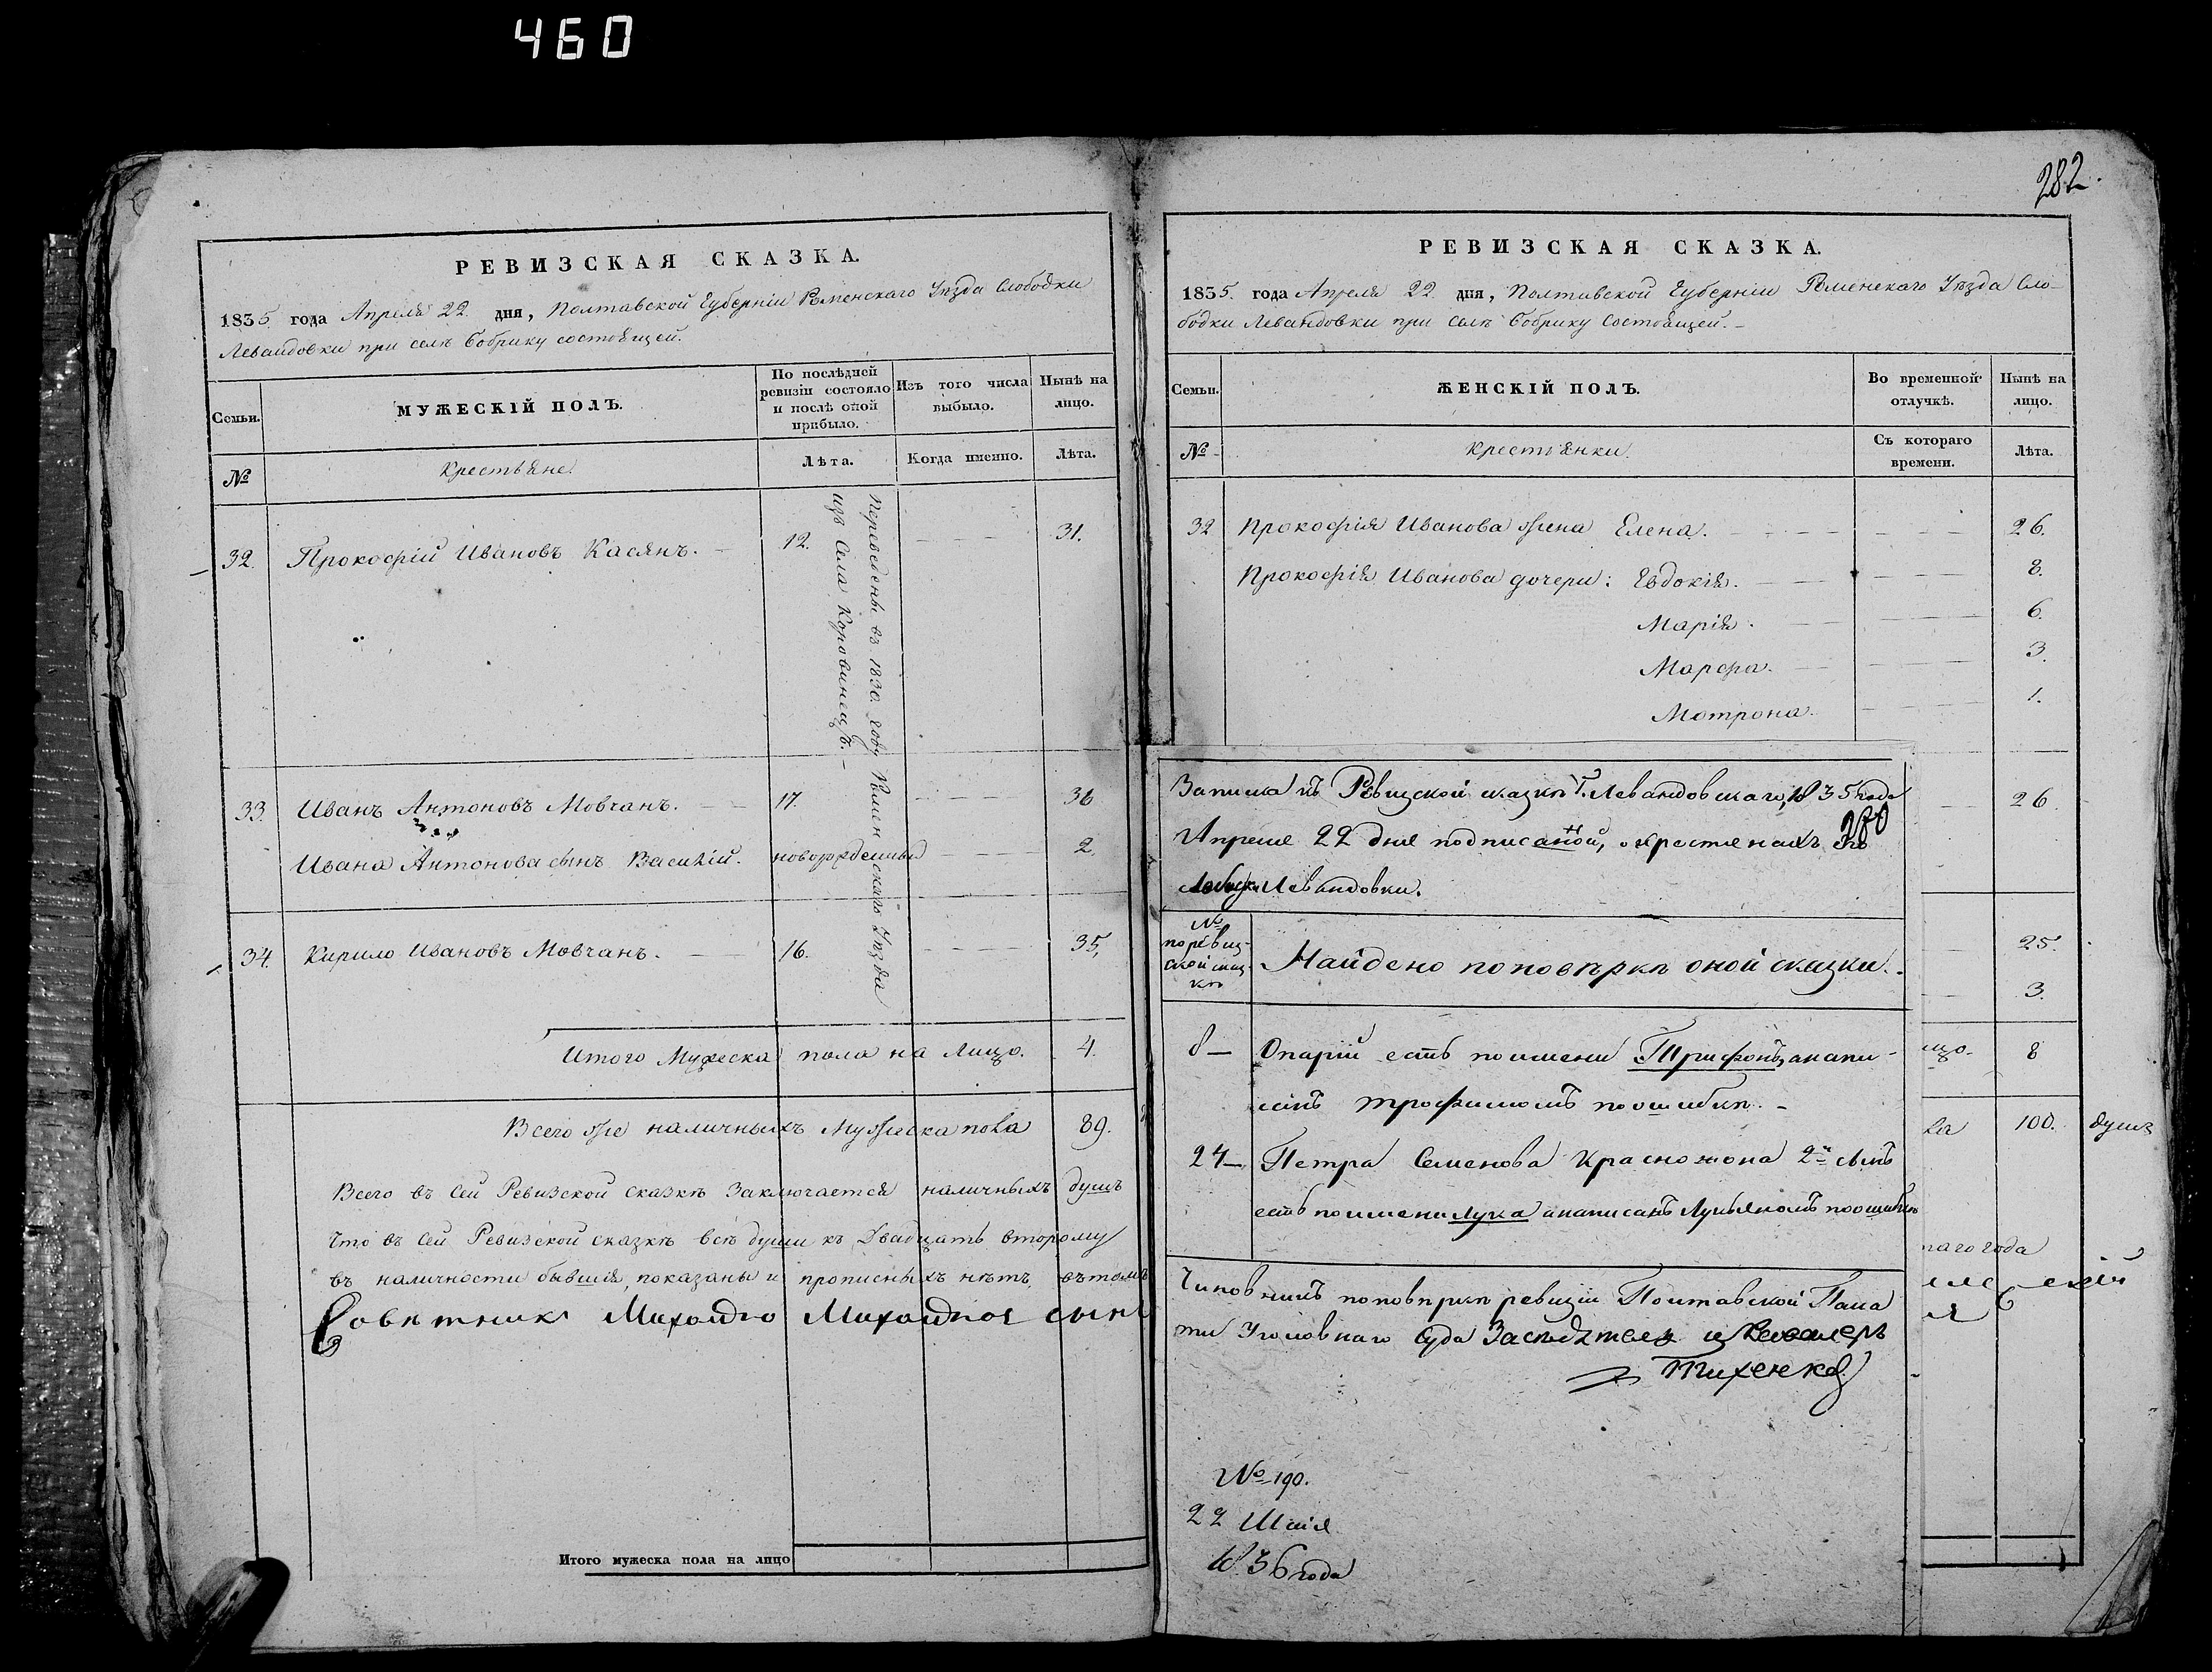 460
282.
РЕВИЗСКАЯ СКАЗКА.
1835 года Апреля 22 дня, Полтавской Губерніи Роменскаго Уезда Слободки
Левандовки при селѣ Бобрику состоящей.
Семьи.
МУЖЕСКІЙ ПОЛЪ.
По послѣдней ревизіи состояло и послѣ оной прибыло.
Изъ того числа выбыло.
Нынѣ на лицо.
№
Крестьяне
Лѣта.
Когда именно.
Лѣта.
32. Прокофій Ивановъ Касянъ. 12. 31.
Переведены въ 1830. году Роменскаго Уезда
изъ Села Коровинецъ.
33. Иванъ Антоновъ Мовчанъ. 17. 36
Ивана Антонова сынъ Василій. новорожденный 2.
34. Кирило Ивановъ Мовчанъ. 16. 35,
Итого Мужеска пола на лицо. 4.
Всего же наличныхъ Мужеска пола 89.
Всего въ сей Ревизской сказкѣ заключается наличныхъ душъ
Что въ сей Ревизской сказкѣ всѣ души къ Двадцать второму
въ наличности бывшія, показаны и прописныхъ нѣтъ, въ томъ
Итого мужеска пола на лицо
РЕВИЗСКАЯ СКАЗКА.
1835. года Апреля 22 дня, Полтавской Губерніи Роменскаго Уезда Сло-
бодки Левандовки при селѣ Бобрику состоящей.
Семьи.
ЖЕНСКІЙ ПОЛЪ.
Во временной отлучкѣ.
Нынѣ на лицо.
№
Крестьянки.
Съ котораго времени.
Лѣта.
32 Прокофія Иванова жена Елена. 26.
Прокофія Иванова дочери: Евдокія. 8.
Марія. 6.
Марфа. 3.
Мотрона. 1.
26
25.
3.
8
100. душъ
наго года
Записка къ Ревизской сказкѣ Г. Левандовскаго, 1835 года
Апреля 22 дня подписаной, о крестьянахъ
280
Левандовки.
№ по ревиз-
ской сказ-
кѣ
Найдено по повѣркѣ оной сказки.
8— Опарій есть по имени Трифонъ, а напи-
санъ Трофимомъ по ошибкѣ. -
24— Петра Семенова Красножона 2й сынъ
есть по имени Лука а написанъ Лукьяномъ по ошибкѣ
Чиновникъ по повѣркѣ ревизіи Полтавской Пала
ты Уголовнаго Суда Засѣдатель и Кавалеръ
Тихенко
№ 190.
22 Маія
1836 года